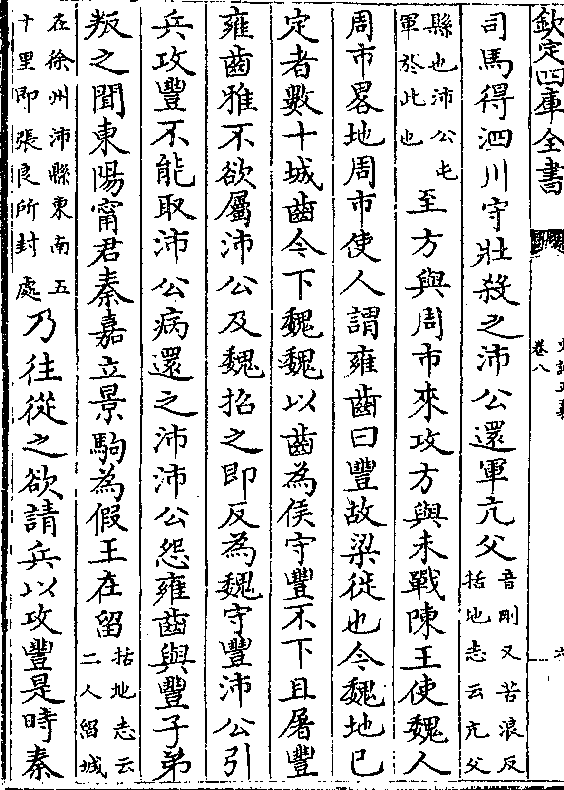 欽定四庫全書
卷八
司馬得泗川守壯殺之沛公還軍亢父音剛又苦浪反括地志云亢父
縣也沛公屯軍於此也至方與周市來攻方與未戰陳王使魏人
周市畧地周市使人謂雍齒曰豐故梁徙也今魏地已
定者數十城齒今下魏魏以齒為侯守豐不下且屠豐
雍齒雅不欲屬沛公及魏招之即反為魏守豐沛公引
兵攻豐不能取沛公病還之沛沛公怨雍齒與豐子弟
叛之聞東陽甯君秦嘉立景駒為假王在留括地志云二人留城
在徐州沛縣東南五十里即張良所封處乃往從之欲請兵以攻豐是時秦